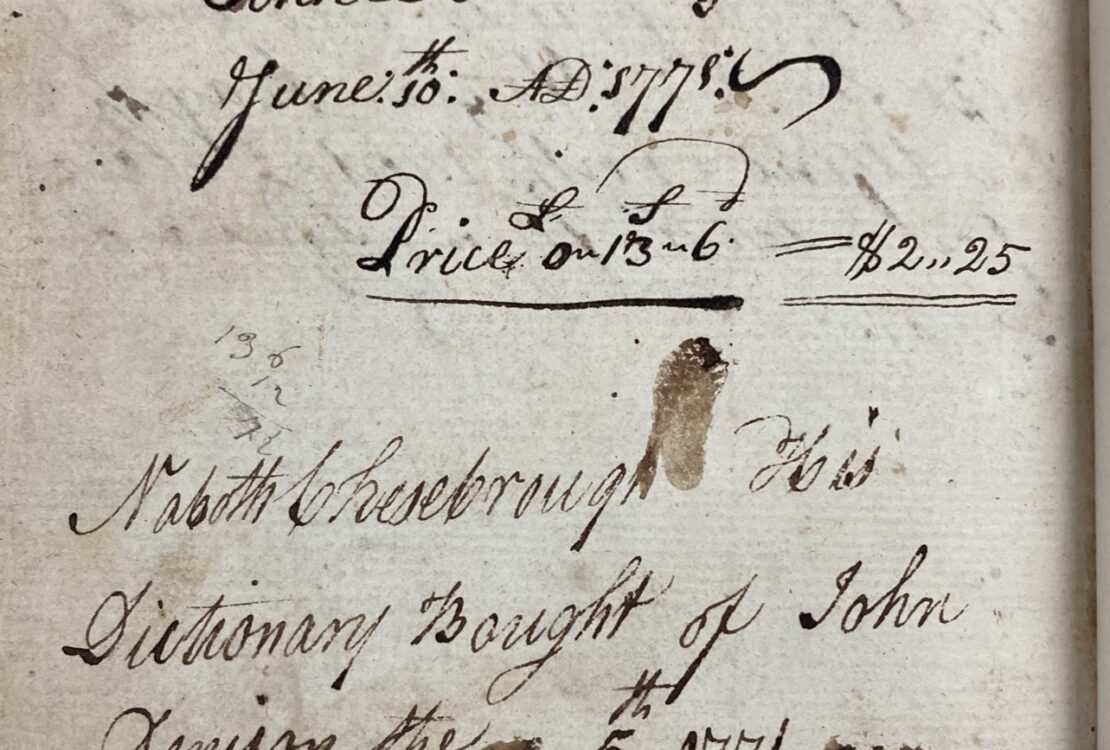 June: 10:th AD: 1771:
£ s d
Price 0 " 13 " 6 = $2 " 25
13 6
12
Naboth Chesebrough His
Dictionary Bought of John
Denison the 5th 1771